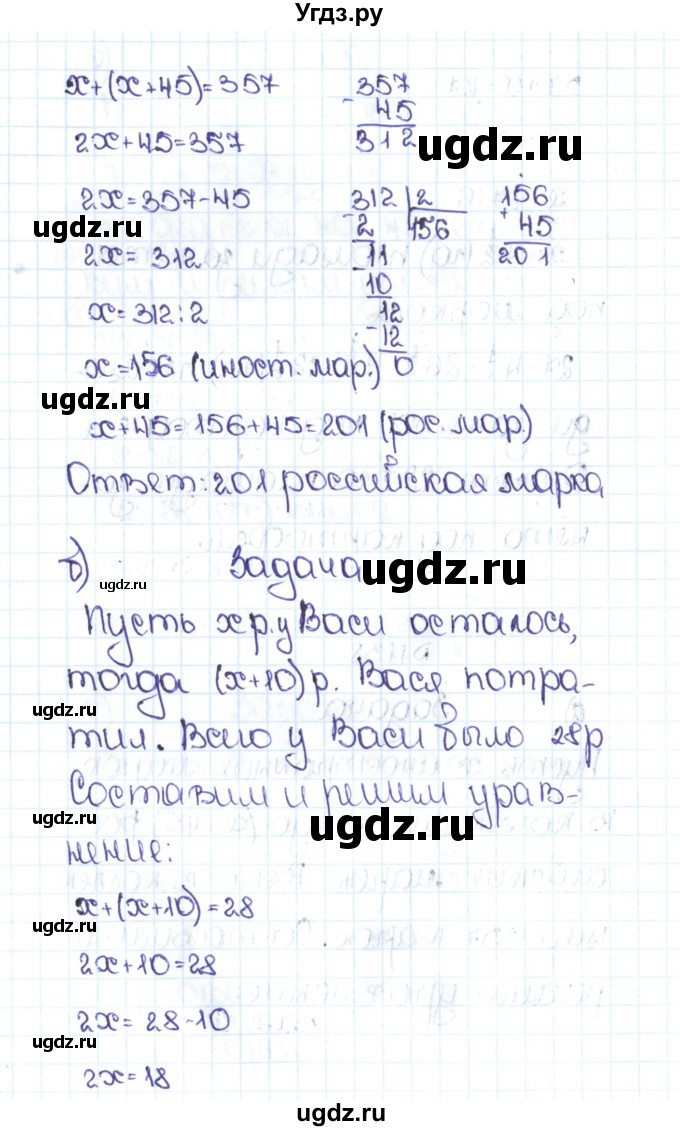 Угдз.ру
x+(x+45)=357
2x+45=357
2x=357-45
2x=312
x=312:2
x=156 (иност. мар.)
357
- 45
312
312 | 2
- 2 156
11
- 10
12
- 12
0
156
+ 45
201
x+45=156+45=201 (рос. мар.)
Ответ: 201 российская марка
б) Задача
Пусть x р. у Васи осталось,
тогда (x+10) р. Вася потра-
тил. Всего у Васи было 28р
Составим и решим урав-
нение:
x+(x+10)=28
2x+10=28
2x=28-10
2x=18
ugdz.ru
ugdz.ru
ugdz.ru
ugdz.ru
ugdz.ru
ugdz.ru
ugdz.ru
ugdz.ru
ugdz.ru
ugdz.ru
ugdz.ru